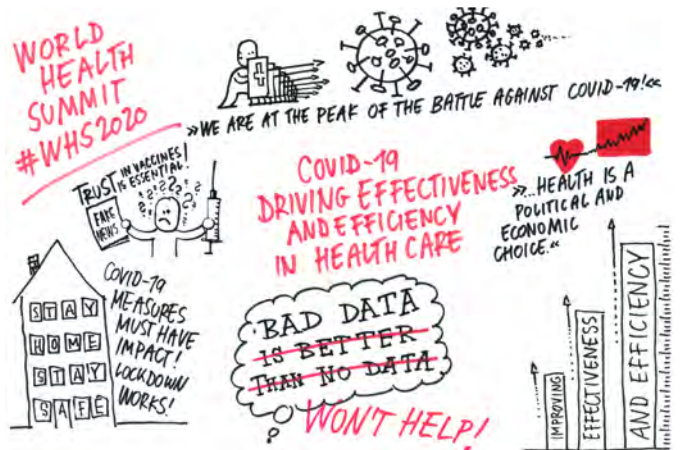 WORLD
HEALTH
SUMMIT
#WHS2020
»WE ARE AT THE PEAK OF THE BATTLE AGAINST COVID-19!«
TRUST IN VACCINES!
IS ESSENTIAL!
FAKE
NEWS
COVID-19
DRIVING EFFECTIVENESS
AND EFFICIENCY
IN HEALTH CARE
»...HEALTH IS A
POLITICAL AND
ECONOMIC
CHOICE.«
COVID-19
MEASURES
MUST HAVE
IMPACT!
LOCKDOWN
WORKS!
STAY
HOME
STAY
SAFE
BAD DATA
IS BETTER
THAN NO DATA
WON'T HELP!
IMPROVING
EFFECTIVENESS
AND EFFICIENCY